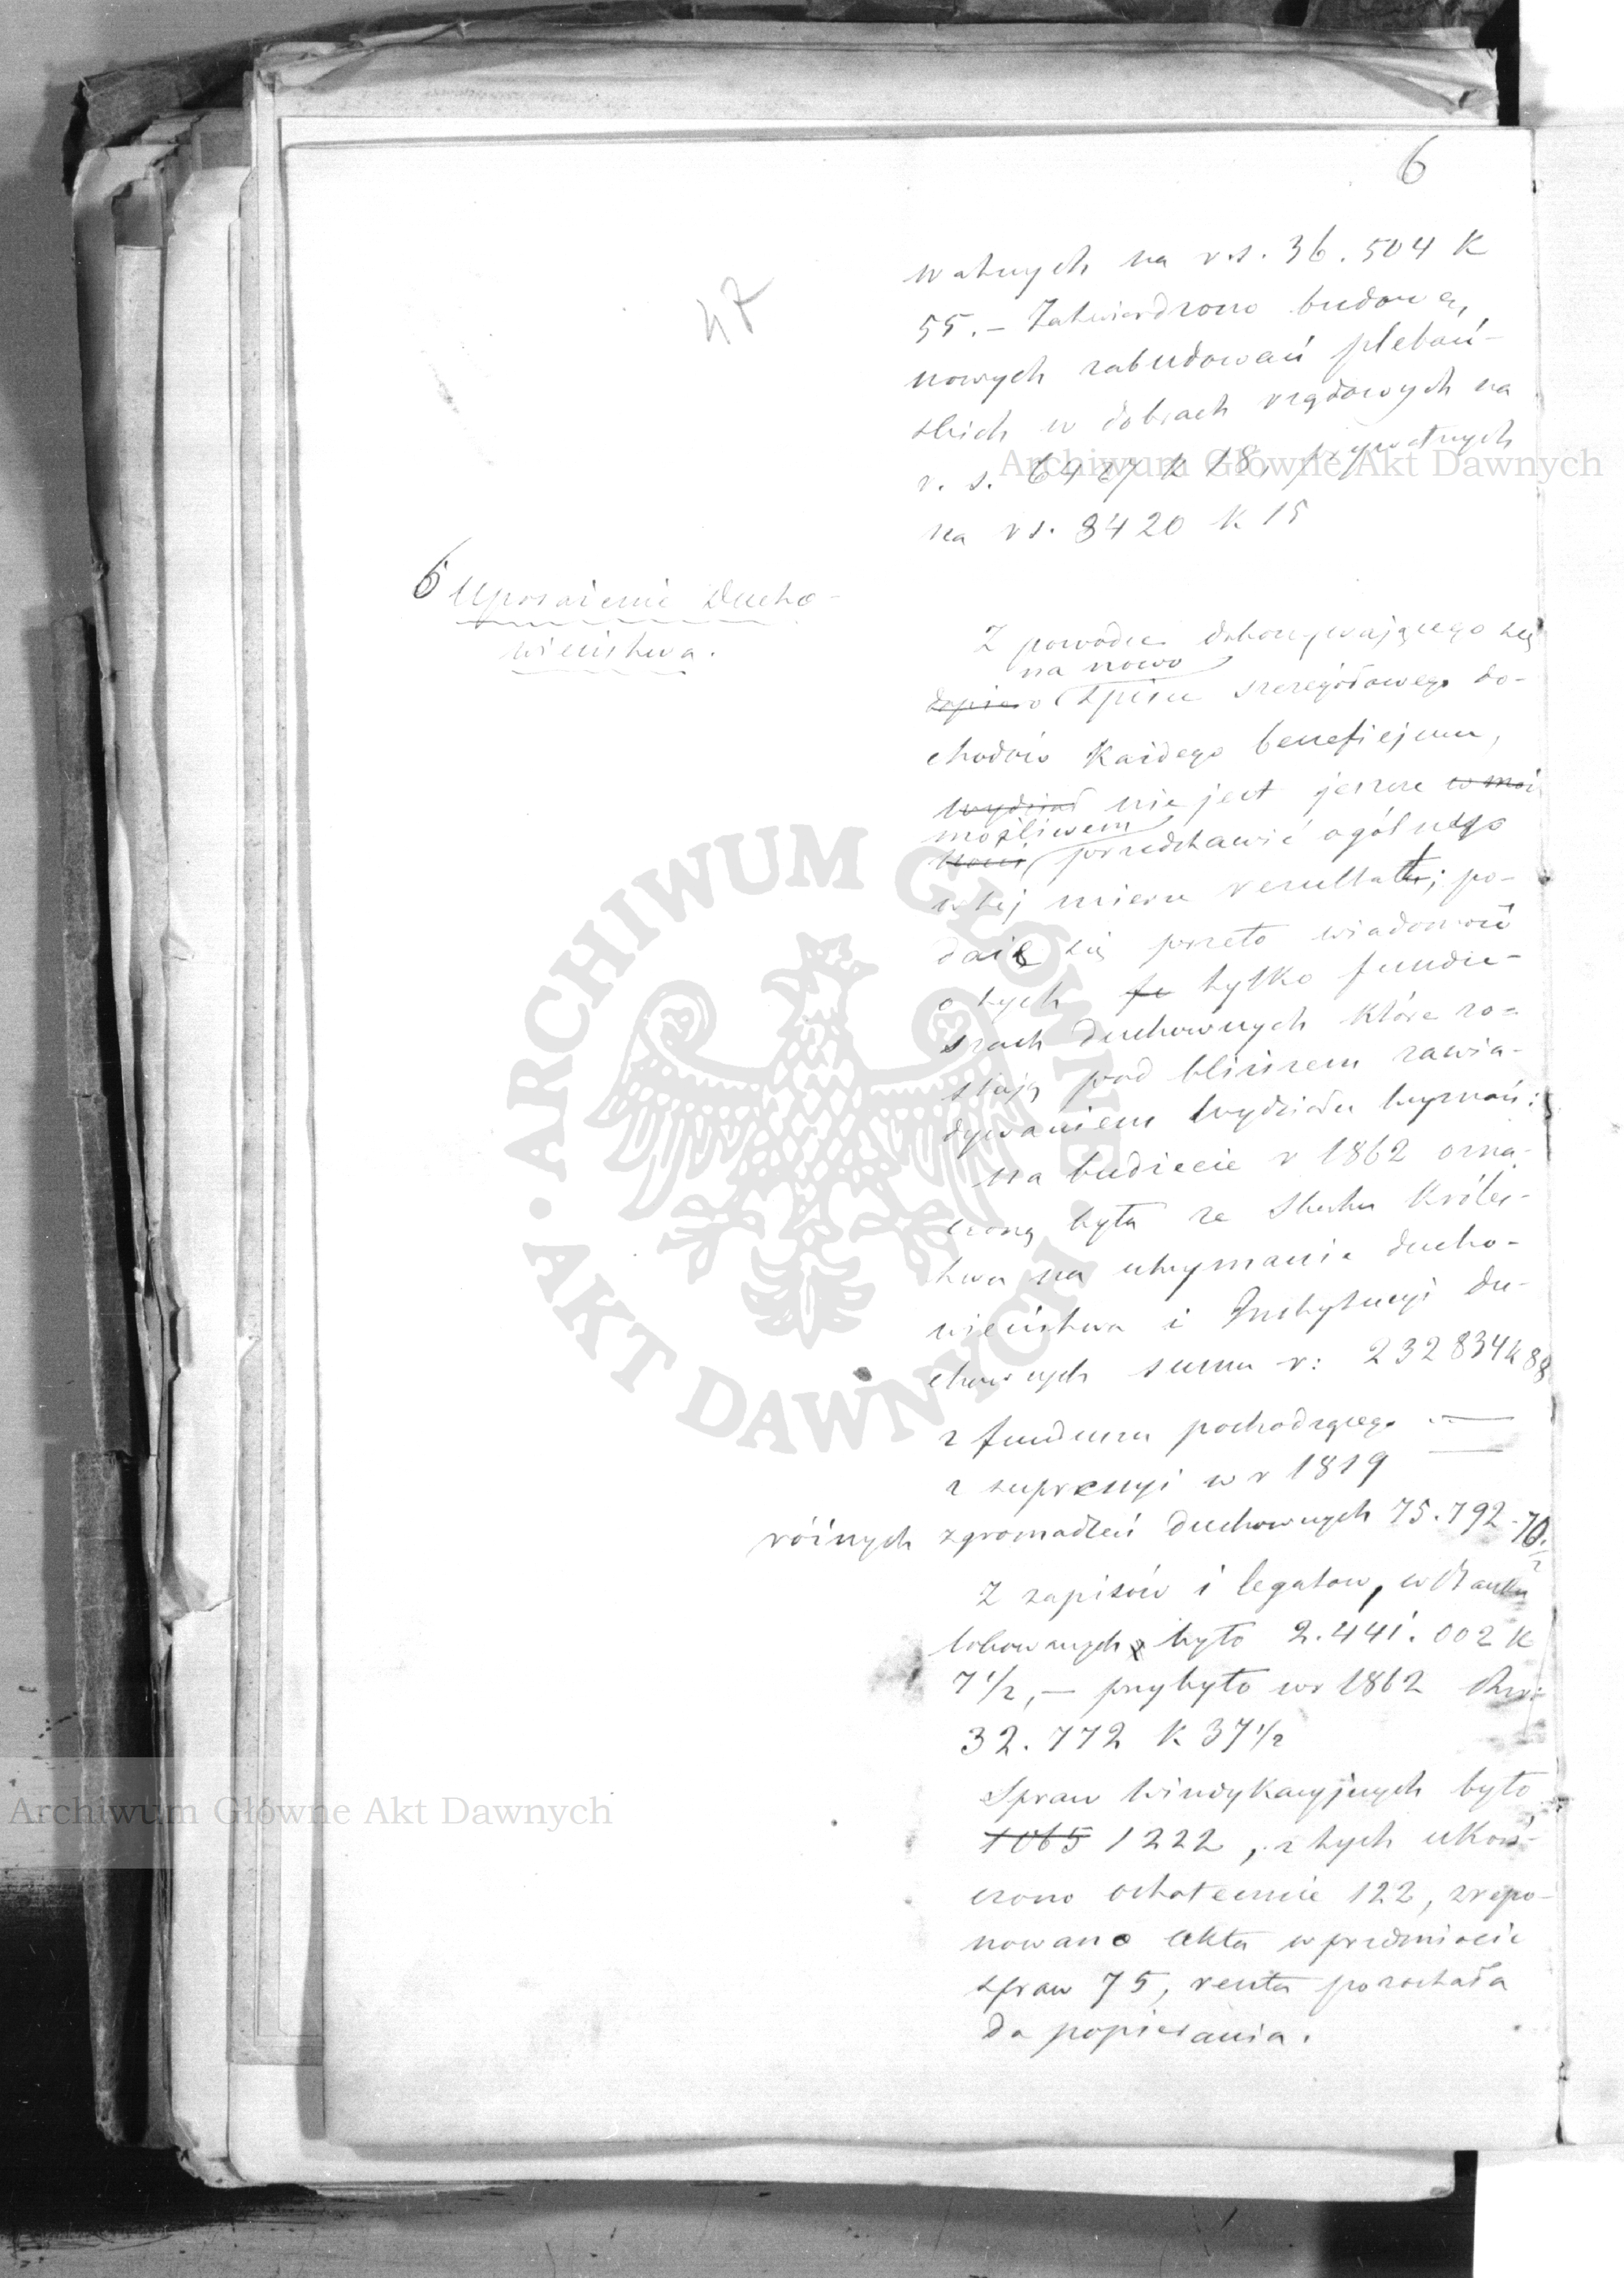 6
47
watnych na rs. 36.504 K
55. – Zatwierdzono budowę
nowych zabudowań plebań-
skich w dobrach rządowych na
r. s. 6487 k 18, prywatnych
na rs. 8420 k 15
6 Uposażenie Ducho-
wieństwa.
Z powodu dokonywającego się
na nowo
dopiero spisu szczegółowego do-
chodów każdego beneficjum,
wydział nie jest jeszcze w moż
możliwem
ności przedstawić ogólnego
w tej mierze rezultatu; po-
daje się przeto wiadomość
o tych fu tylko fundu-
szach duchownych które zo-
stają pod bliższem zawia-
dywaniem Wydziału Wyznań:
na budżecie r 1862 ozna-
czoną była ze Skarbu Króles-
twa na utrzymanie ducho-
wieństwa i Instytucyi du-
chownych summa r: 232834 k 88
z funduszu pochodzącego
z supressyi w r 1819
różnych zgromadzeń duchownych 75.792.70 1/2
Z zapisów i legatow, w Banku
lokowanych było 2.441.002 k
7 1/2, – przybyło w r 1862 Rs:
32.772 k 37 1/2
Spraw windykacyjnych było
1065 1222, z tych ukoń-
czono ostatecznie 122, zrepo-
nowano akta w przedmiocie
spraw 75, reszta pozostała
do popierania.
Archiwum Główne Akt Dawnych
ARCHIWUM GŁÓWNE · AKT DAWNYCH ·
Archiwum Główne Akt Dawnych